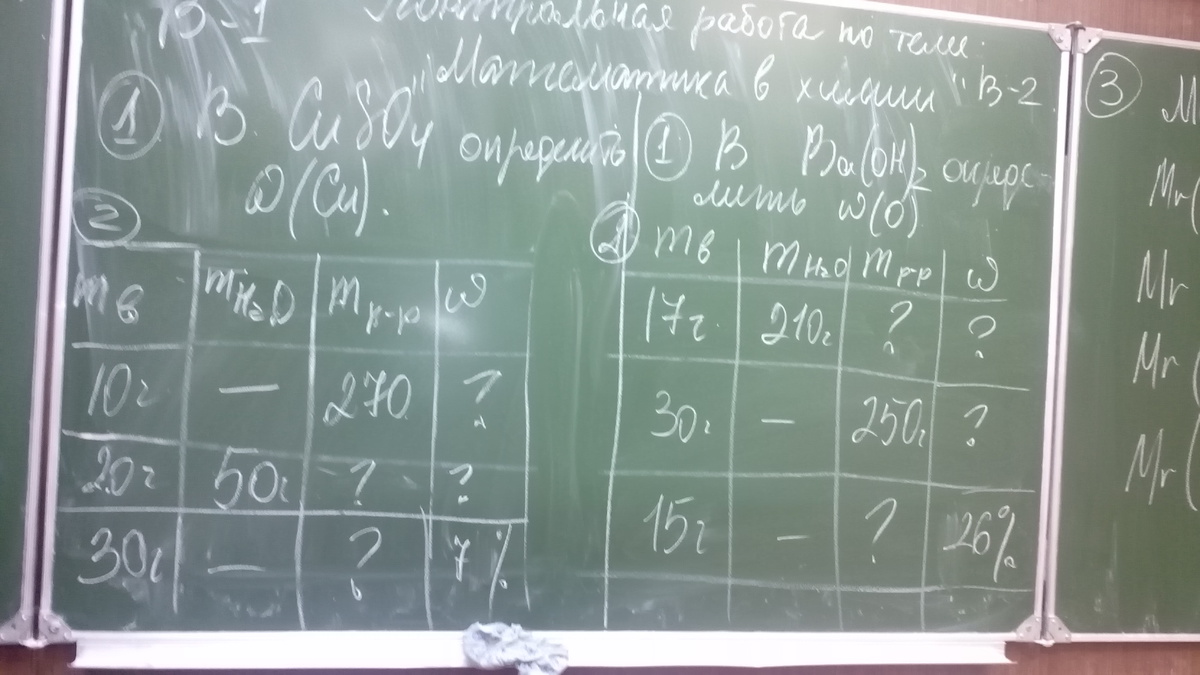 В-1 Контрольная работа по теме:
"Математика в химии"
В-2
① В CuSO4 определить
ω(Cu).
②
mв mH2O mр-р ω
10г — 270 ?
20г 50г ? ?
30г — ? 7%
① В Ba(OH)2 опреде-
лить ω(O)
② mв mH2O mр-р ω
17г 210г ? ?
30г — 250г ?
15г — ? 26%
③ M
Mr(
Mr
Mr (
Mr (